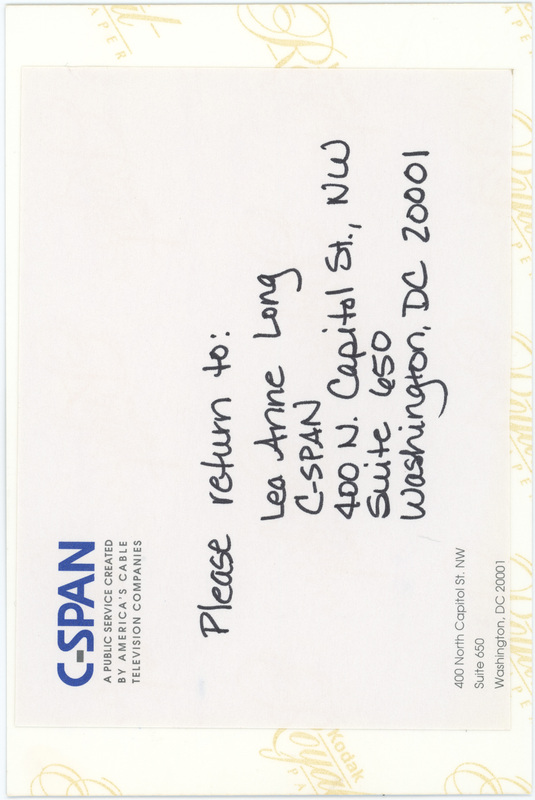 C-SPAN
A PUBLIC SERVICE CREATED
BY AMERICA'S CABLE
TELEVISION COMPANIES
Please return to:
Lea Anne Long
C-SPAN
400 N. Capitol St., NW
Suite 650
Washington, DC 20001
400 North Capitol St. NW
Suite 650
Washington, DC 20001
Kodak